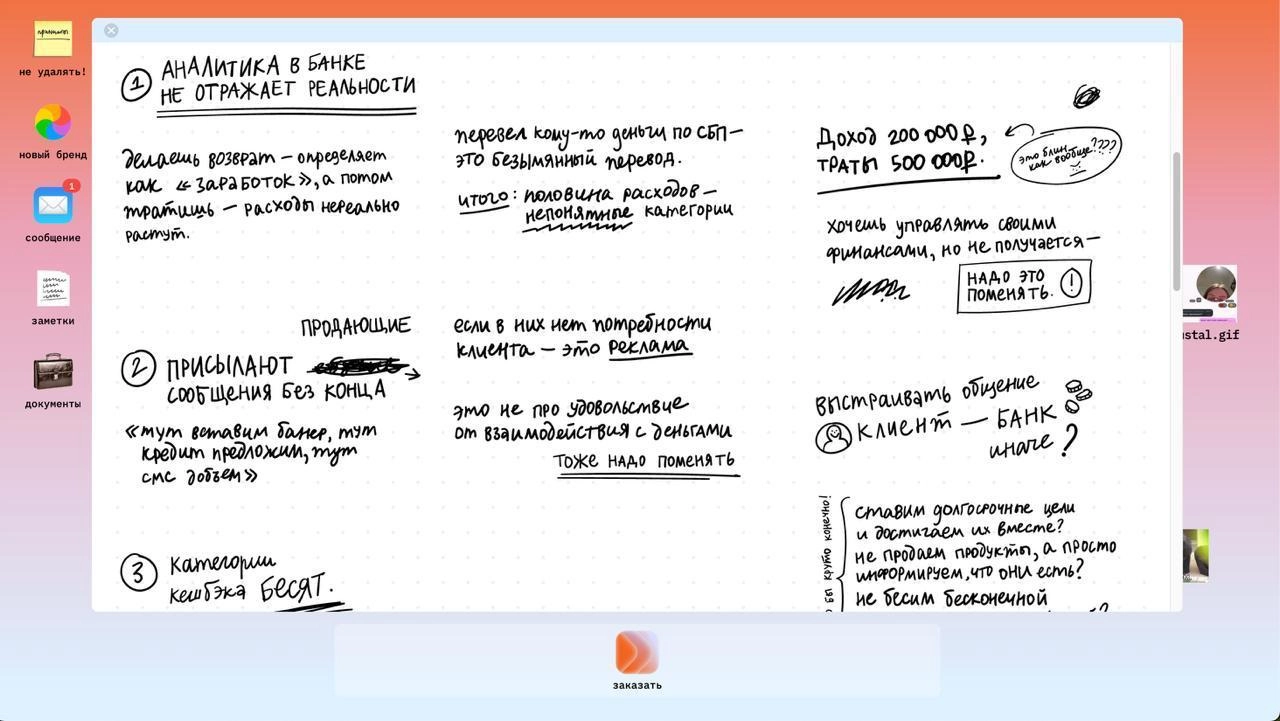 не удалять!
новый бренд
1
сообщение
заметки
документы
1 АНАЛИТИКА В БАНКЕ
НЕ ОТРАЖАЕТ РЕАЛЬНОСТИ
делаешь возврат — определяет
как «ЗАРАБОТОК», а потом
тратишь — расходы нереально
растут.
перевел кому-то деньги по СБП —
это безымянный перевод.
итого: половина расходов —
непонятные категории
Доход 200 000₽,
траты 500 000₽.
это блин
как вообще????
хочешь управлять своими
финансами, но не получается —
НАДО ЭТО
ПОМЕНЯТЬ. !
ПРОДАЮЩИЕ
2 ПРИСЫЛАЮТ
СООБЩЕНИЯ БЕЗ КОНЦА
«тут вставим банер, тут
кредит предложим, тут
смс добъем»
если в них нет потребности
клиента — это реклама
это не про удовольствие
от взаимодействия с деньгами
тоже надо поменять
выстраивать общение
клиент — БАНК
иначе?
ставим долгосрочные цели
и достигаем их вместе?
не продаем продукты, а просто
информируем, что они есть?
не бесим бесконечной
бы круто конечно!
3 категории
кешбэка БЕСЯТ.
ustal.gif
заказать